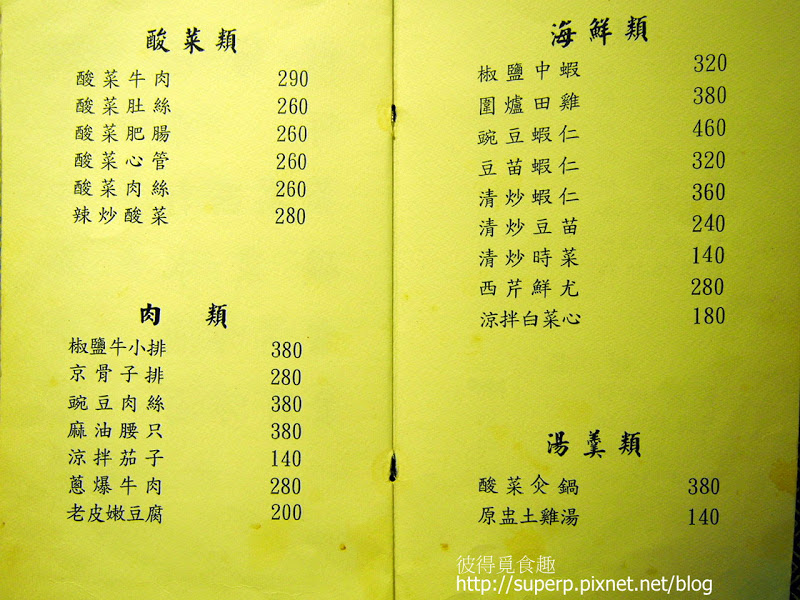 酸菜類
酸菜牛肉 290
酸菜肚絲 260
酸菜肥腸 260
酸菜心管 260
酸菜肉絲 260
辣炒酸菜 280
肉類
椒鹽牛小排 380
京骨子排 280
豌豆肉絲 380
麻油腰只 380
涼拌茄子 140
蔥爆牛肉 280
老皮嫩豆腐 200
海鮮類
椒鹽中蝦 320
圍爐田雞 380
豌豆蝦仁 460
豆苗蝦仁 320
清炒蝦仁 360
清炒豆苗 240
清炒時菜 140
西芹鮮尤 280
涼拌白菜心 180
湯羹類
酸菜炎鍋 380
原盅土雞湯 140
彼得覓食趣
http://superp.pixnet.net/blog